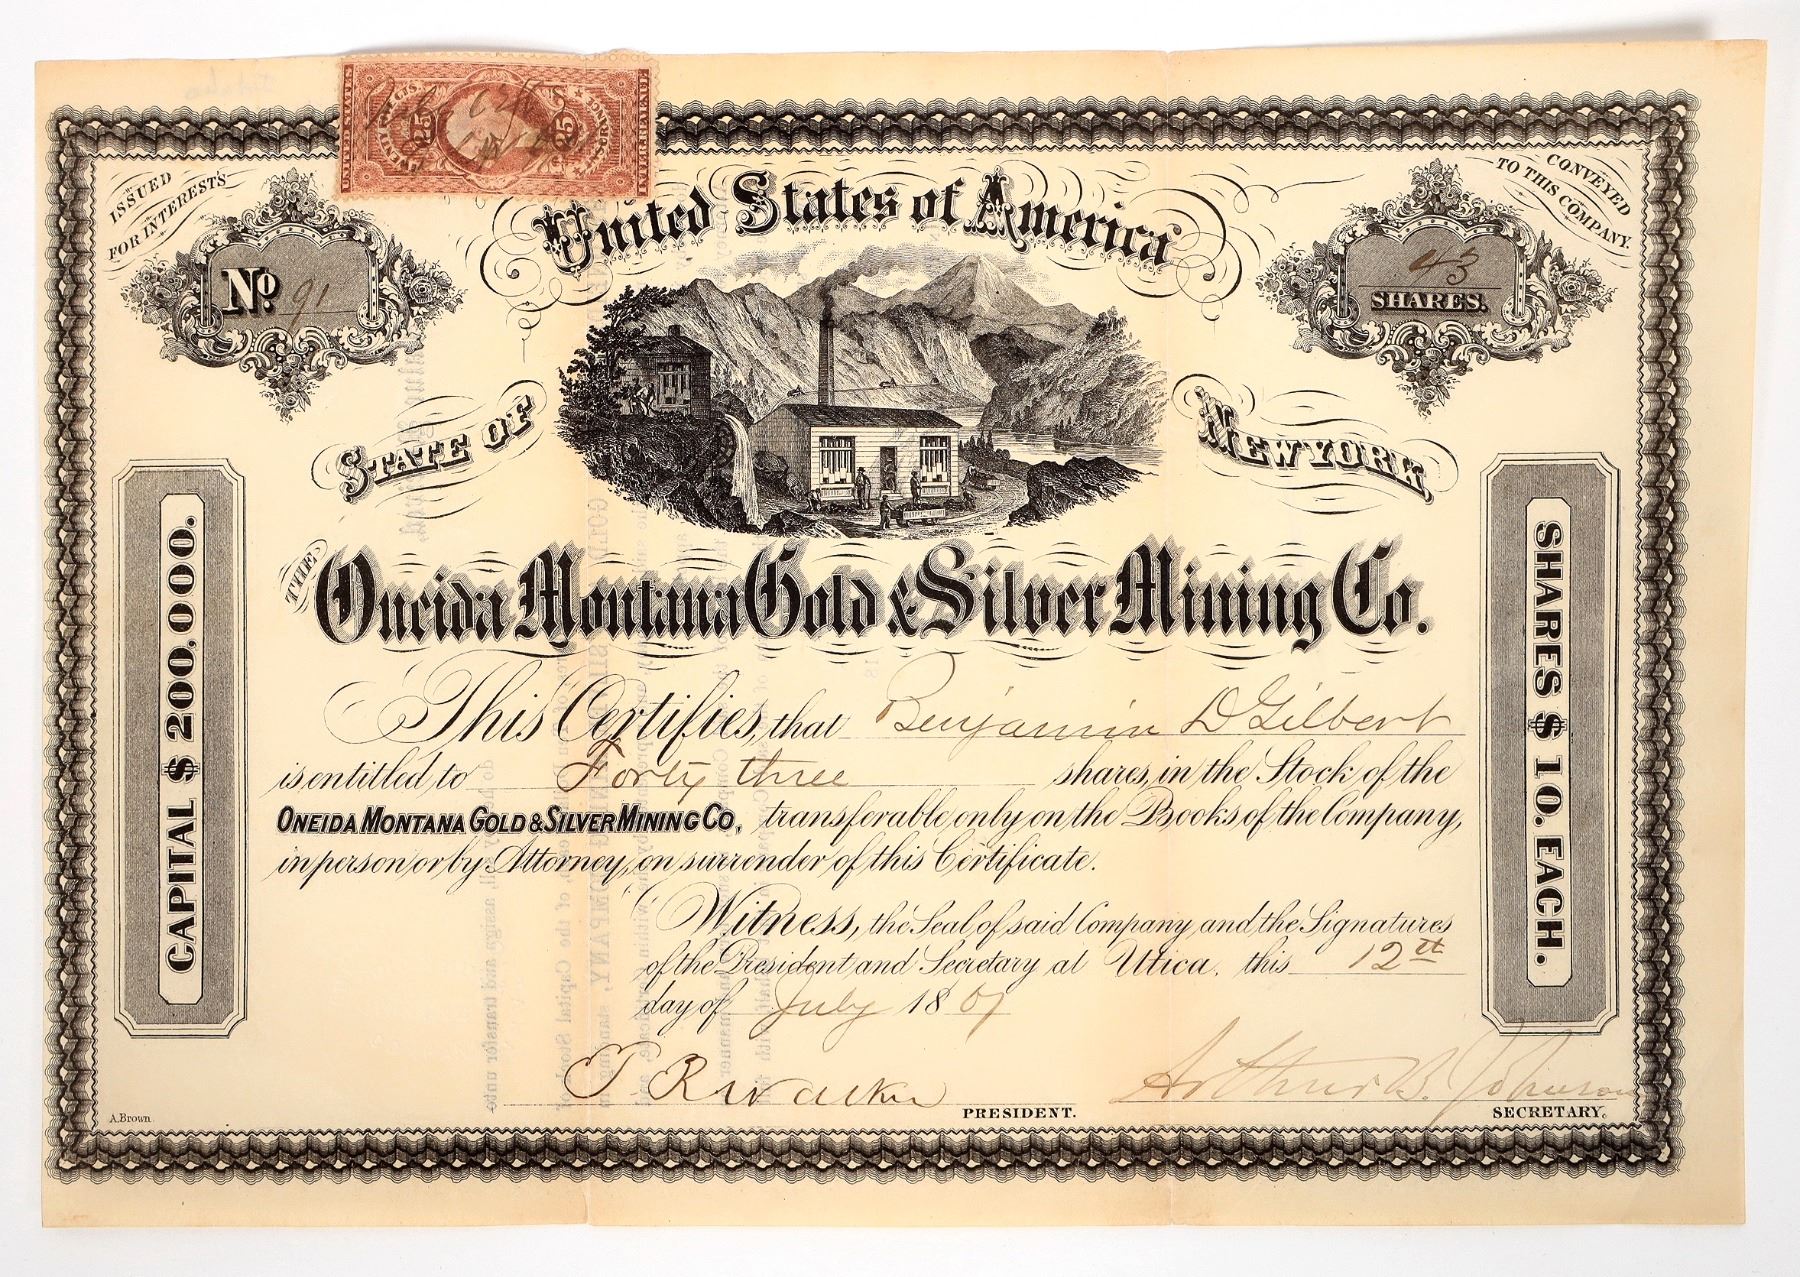 UNITED STATES
INTER. REVENUE
25
25
ISSUED
FOR INTERESTS
CONVEYED
TO THIS COMPANY.
No. 91
43
SHARES.
United States of America
STATE OF
NEW YORK
THE
Oneida Montana Gold & Silver Mining Co.
CAPITAL $ 200,000.
SHARES $ 10. EACH.
This Certifies, that Benjamin D Gilbert
is entitled to Forty three shares, in the Stock of the
ONEIDA MONTANA GOLD & SILVER MINING CO, transferable only on the Books of the Company,
in person or by Attorney, on surrender of this Certificate.
Witness, the Seal of said Company and the Signatures
of the President and Secretary at Utica, this 12th
day of July 1867
T R Walker PRESIDENT.
Arthur B. Johnson
SECRETARY.
A. Brown